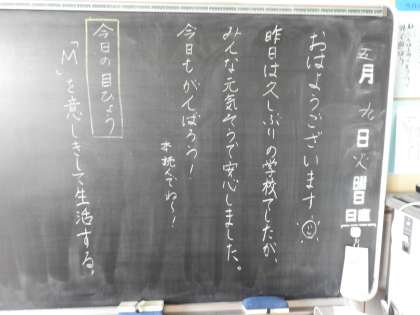 五月九日火曜日
日直
おはようございます
昨日は久しぶりの学校でしたが、
みんな元気そうで安心しました。
今日もがんばろう!
本読んでね〜!
今日の目ひょう
「M」を意しきして生活する。